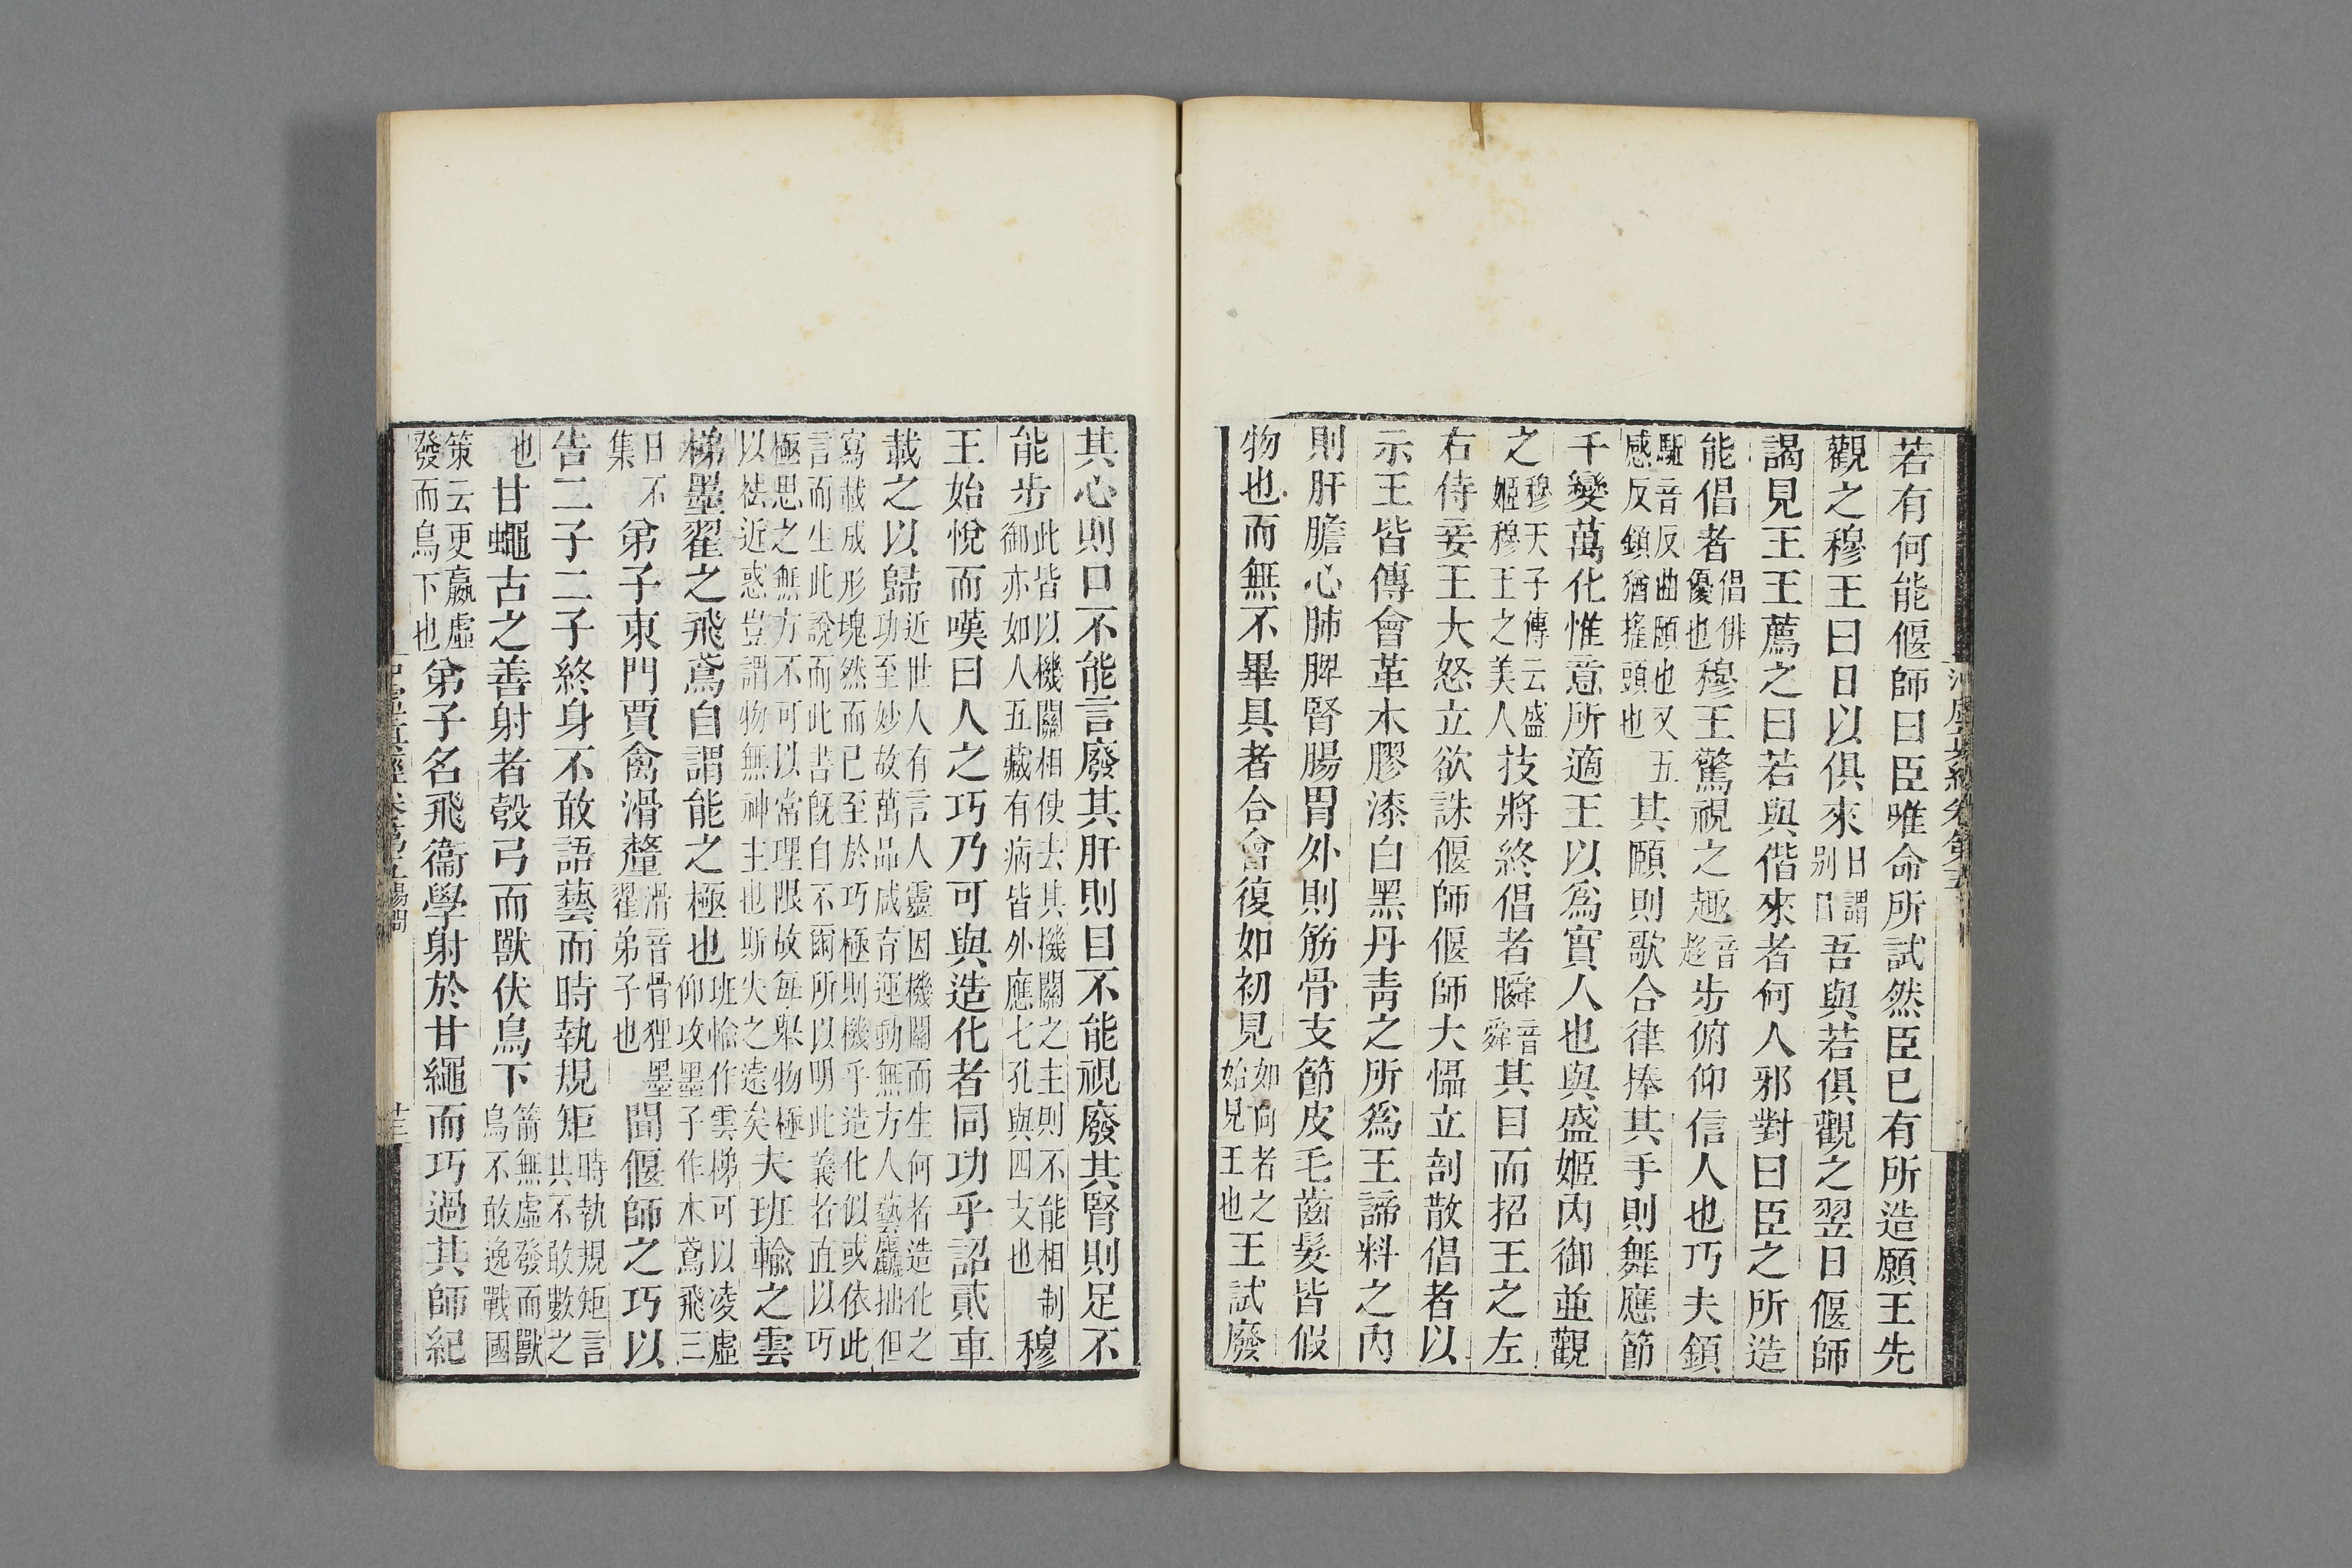 若有何能偃師曰臣唯命所試然臣已有所造願王先
觀之穆王曰日以俱來日謂別日吾與若俱觀之翌日偃師
謁見王王薦之曰若與偕來者何人邪對曰臣之所造
能倡者倡俳優也穆王驚視之趣音趨步俯仰信人也巧夫顉
驅音反曲頤也又五感反顉猶搖頭也其頤則歌合律捧其手則舞應節
千變萬化惟意所適王以爲實人也與盛姬內御並觀
之穆天子傳云盛姬穆王之美人技將終倡者瞬音舜其目而招王之左
右侍妾王大怒立欲誅偃師偃師大懾立剖散倡者以
示王皆傅會革木膠漆白黑丹青之所爲王諦料之內
則肝膽心肺脾腎腸胃外則筋骨支節皮毛齒髮皆假
物也而無不畢具者合會復如初見如向者之始見王也王試廢
其心則口不能言廢其肝則目不能視廢其腎則足不
能步此皆以機關相使去其機關之主則不能相制御亦如人五藏有病皆外應七孔與四支也穆
王始悅而嘆曰人之巧乃可與造化者同功乎詔貳車
載之以歸近世人有言人靈因機關而生何者造化之功至妙故萬品咸育運動無方人藝麤拙但
寫載成形塊然而已至於巧極則機乎造化似或依此言而生此說而此書既自不爾所以明此義者直以巧
極思之無方不可以常理限故每舉物極以祛近惑豈謂物無神主也斯失之遠矣夫班輸之雲
梯墨翟之飛鳶自謂能之極也班輸作雲梯可以凌虛仰攻墨子作木鳶飛三
日不集弟子東門賈禽滑釐滑音骨狸墨翟弟子也聞偃師之巧以
告二子二子終身不敢語藝而時執規矩時執規矩言其不敢數之
也甘蠅古之善射者彀弓而獸伏鳥下箭無虛發而獸鳥不敢逸戰國
策云更羸虛發而鳥下也弟子名飛衞學射於甘繩而巧過其師紀